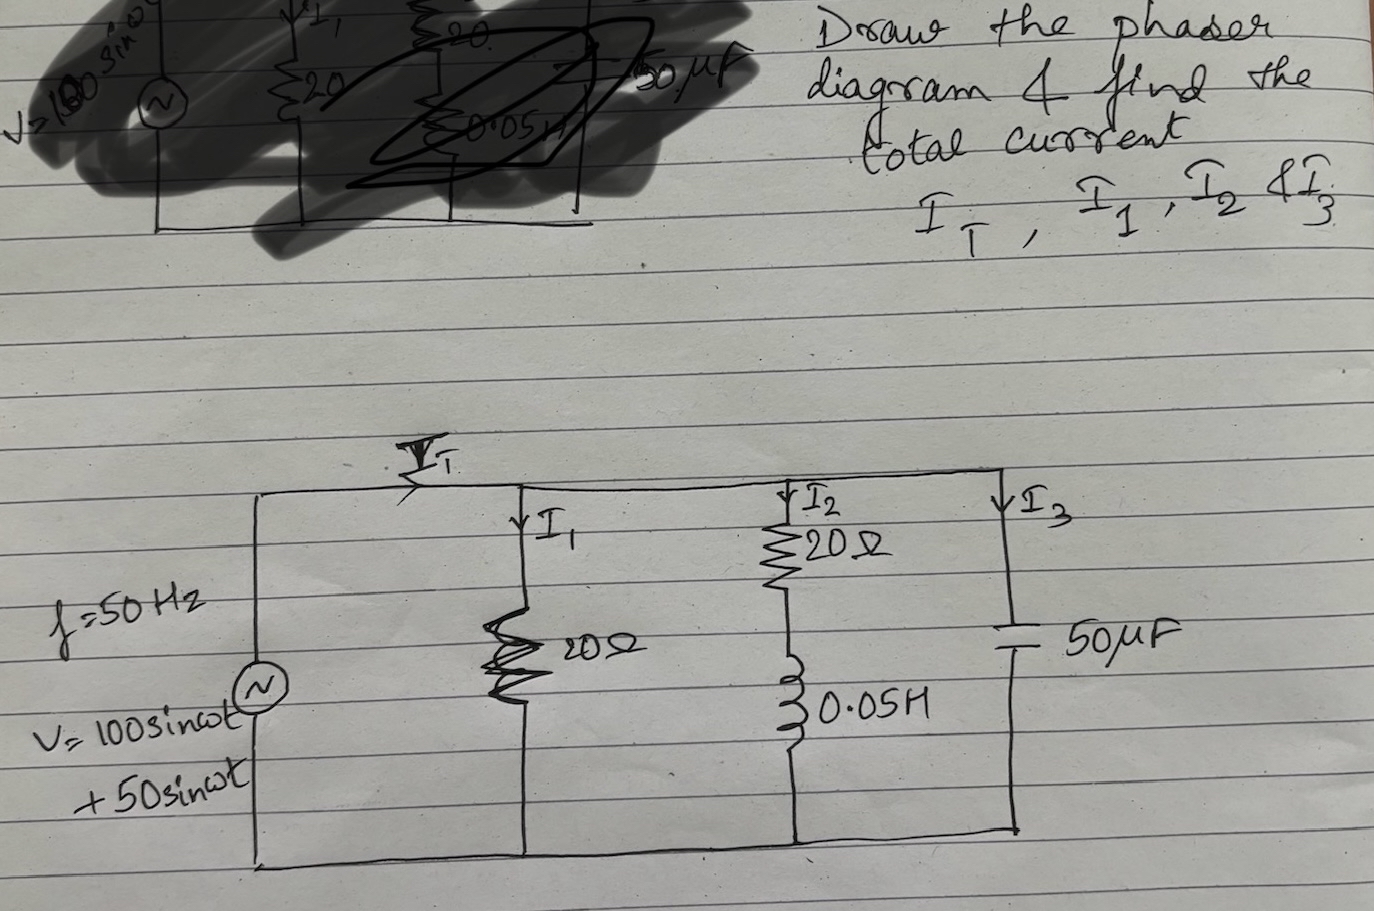 V=100 sin ω
I₁
20
20
0.05H
50 μF
Draw the phaser
diagram & find the
total current
I_T, I₁, I₂ & I₃
I_T
I₁
I₂
I₃
20Ω
f=50Hz
20Ω
50μF
0.05H
V=100sinωt
+50sinωt